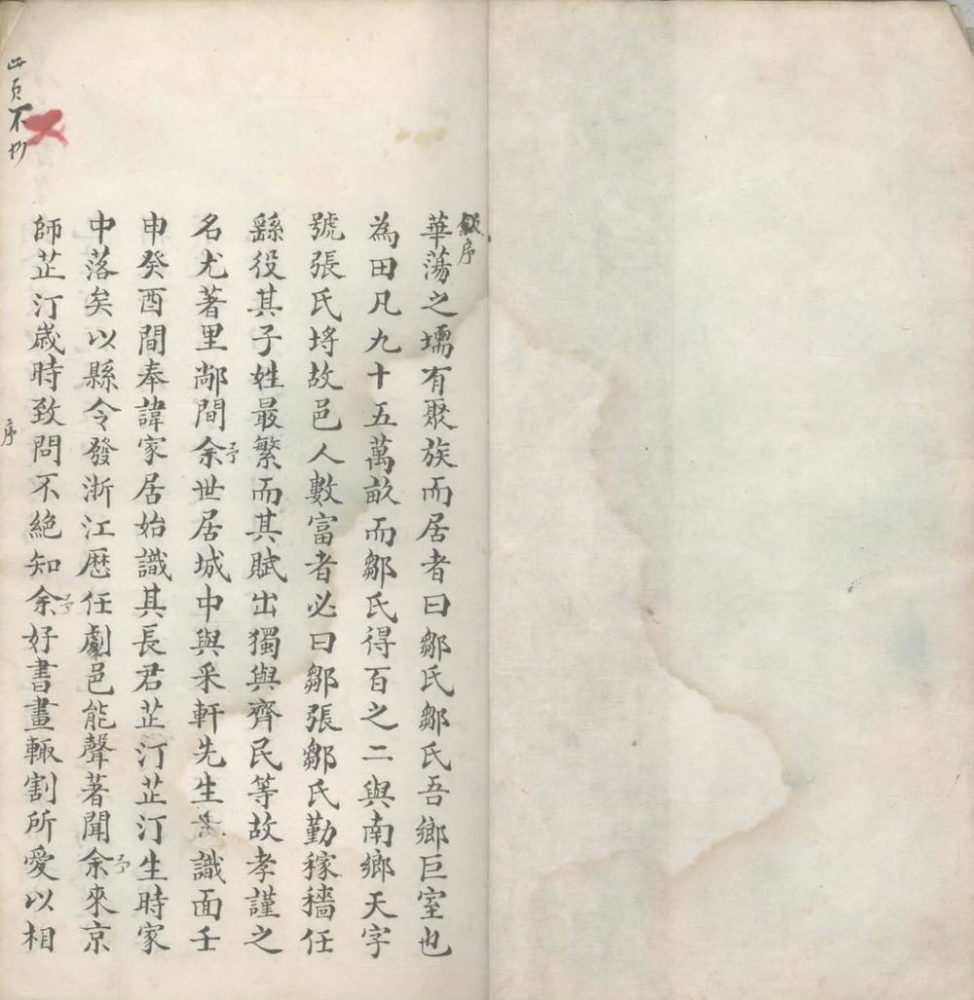 敘序
華蕩之壖有聚族而居者曰鄒氏鄒氏吾鄉巨室也
為田凡九十五萬畝而鄒氏得百之二與南鄉天字
號張氏埒故邑人數富者必曰鄒張鄒氏勤稼穡任
繇役其子姓最繁而其賦出獨與齊民等故孝謹之
名尤著里鄉間余予世居城中與采軒先生識面壬
申癸酉間奉諱家居始識其長君芷汀芷汀生時家
中落矣以縣令發浙江歷任劇邑能聲著聞余予來京
師芷汀歲時致問不絕知余予好書畫輙割所愛以相
序
此頁不抄